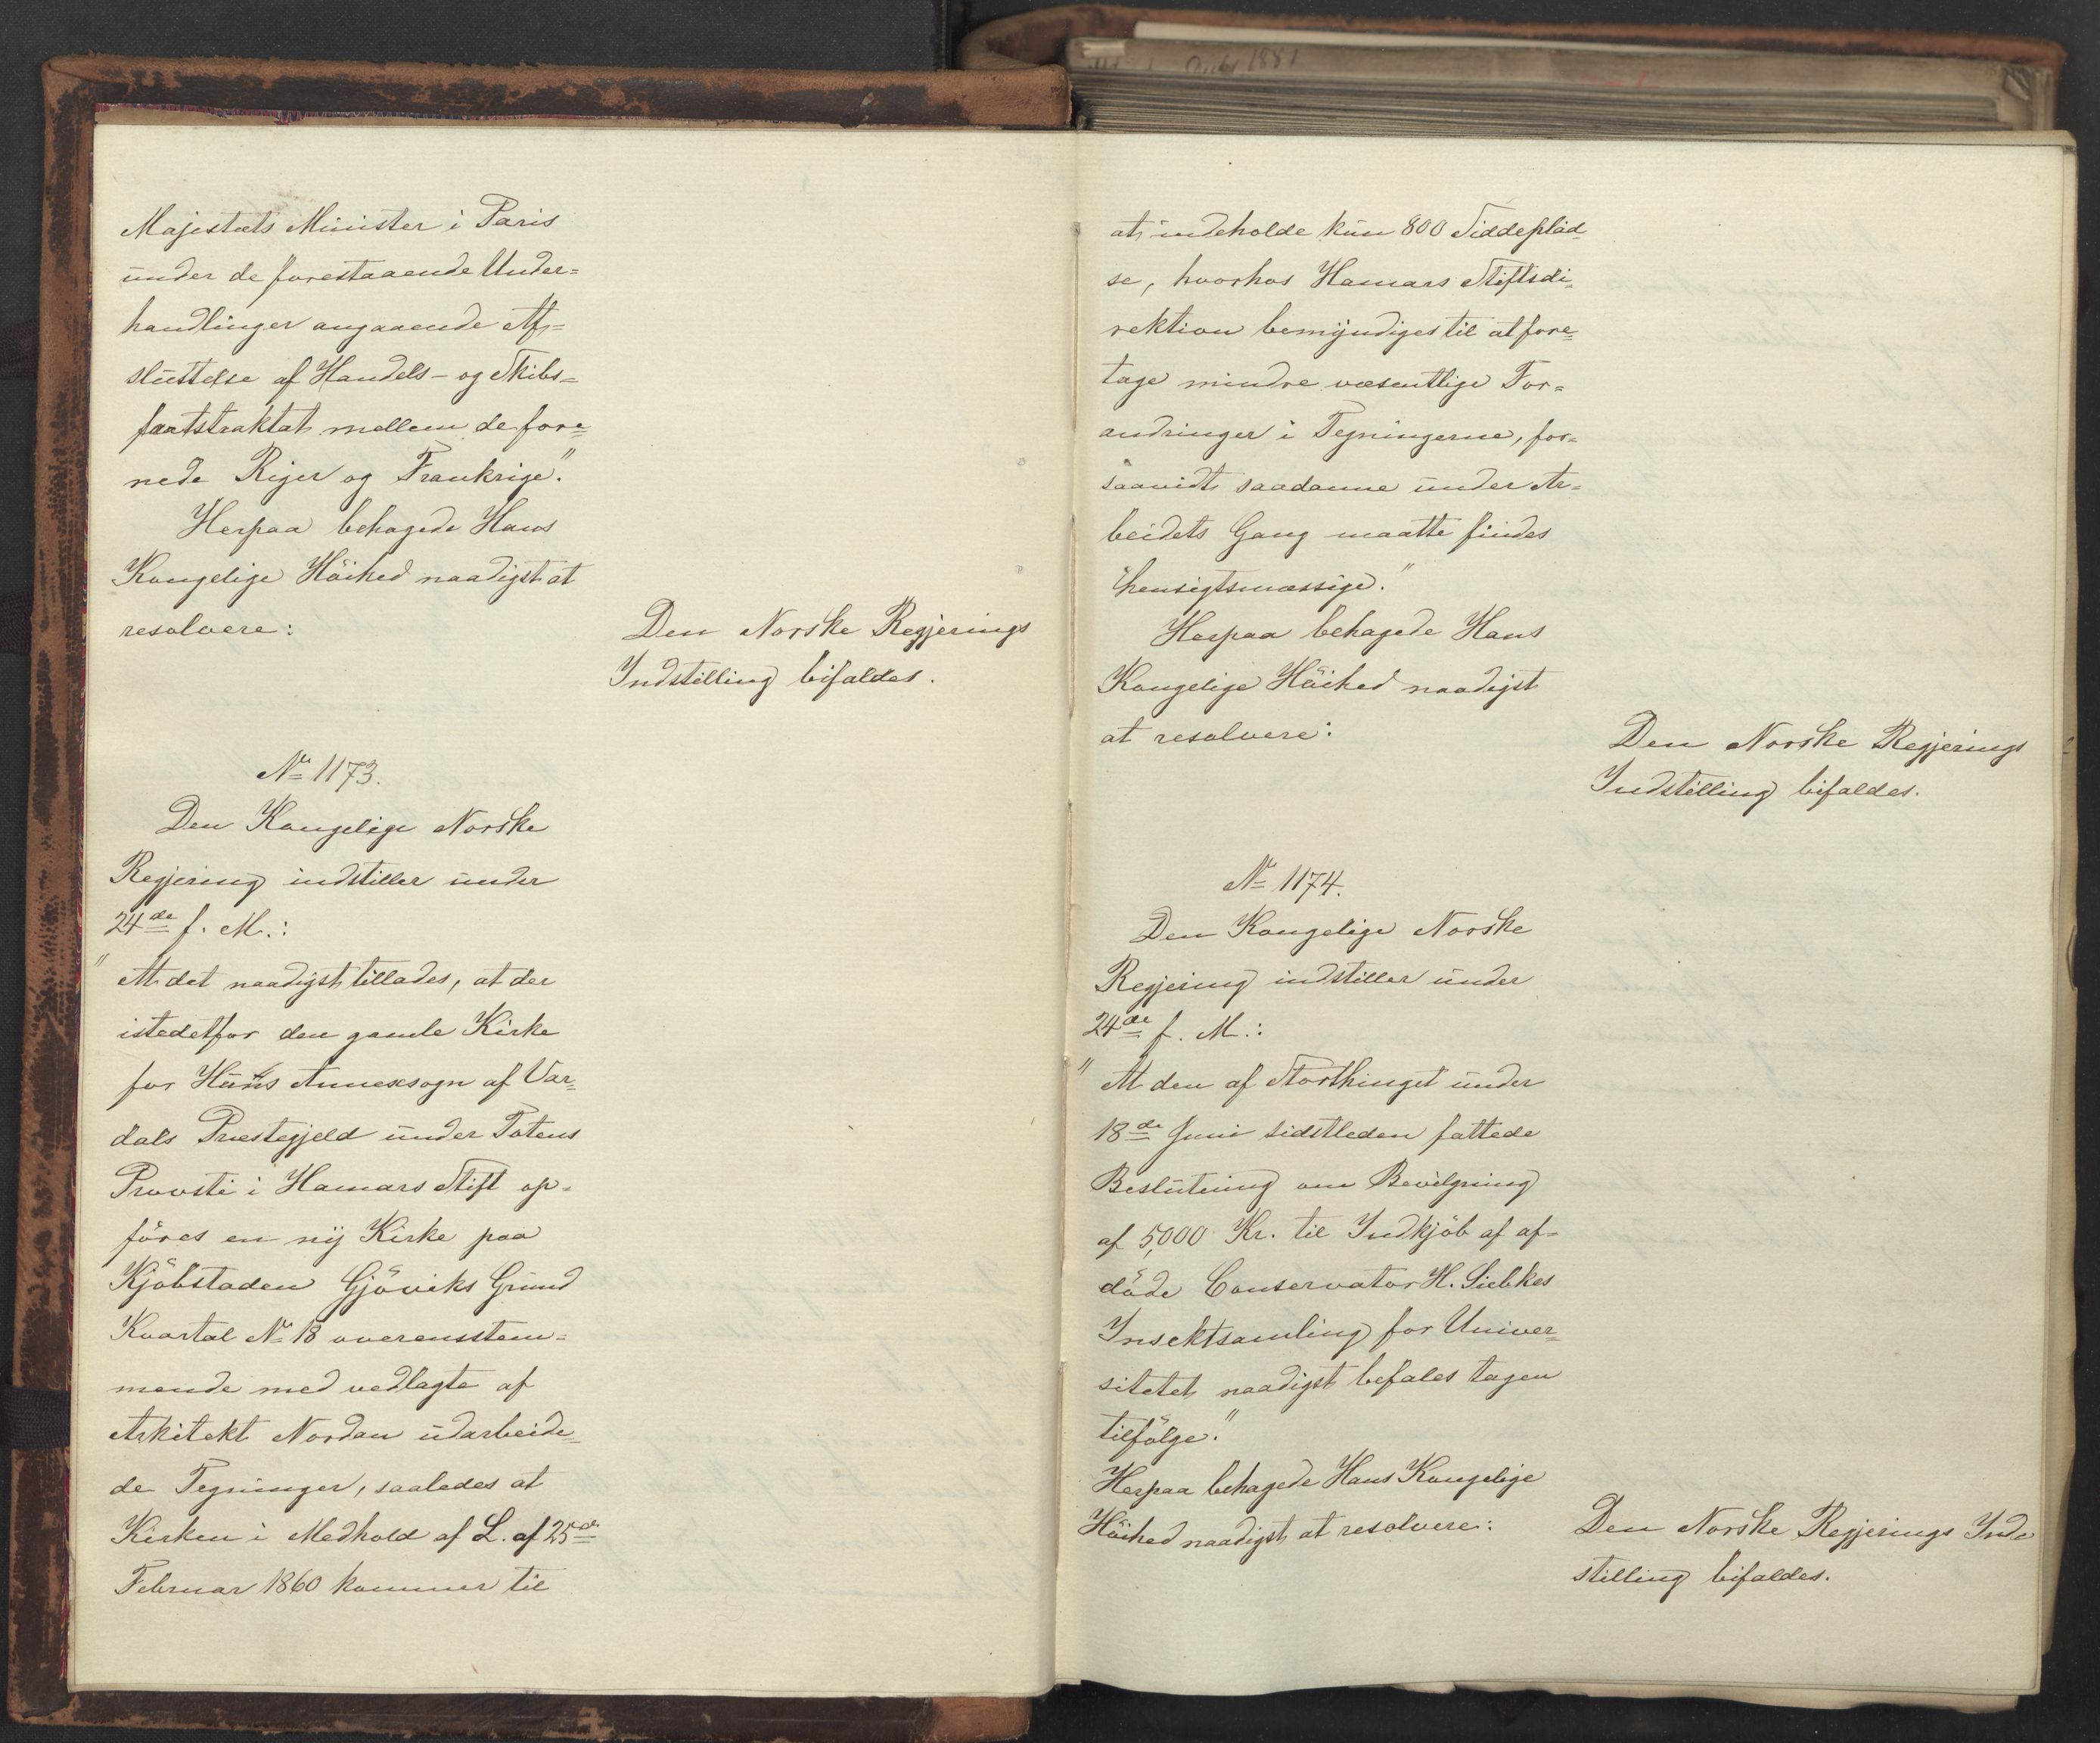 Majestæts Minister i Paris
under de forestaaende Under=
handlinger angaaende Af=
sluttelse af Handels- og Skibs=
fartstraktat mellem de fore=
nede Riger og Frankrige."
Herpaa behagede Hans
Kongelige Höihed naadigst at
resolvere:
Den Norske Regjerings
Indstilling bifaldes.
No 1173.
Den Kongelige Norske
Regjering indstiller under
24de f. M.:
"At det naadigst tillades, at der
istedetfor den gamle Kirke
for Huns Annexsogn af Var=
dals Præstegjeld under Totens
Provsti i Hamars Stift op=
föres en ny Kirke paa
Kjöbstaden Gjöviks Grund
Kvartal No 18 overensstem=
mende med vedlagte af
Arkitekt Nordan udarbeide=
de Tegninger, saaledes at
Kirken i Medhold af L. af 25de
Februar 1860 kommer til
at indeholde kun 800 Siddeplad=
se, hvorhos Hamars Stiftsdi=
rektion bemyndiges til at fore=
tage mindre væsentlige For=
andringer i Tegningerne, for=
saavidt saadanne under Ar=
beidets Gang maatte findes
hensigtsmæssige."
Herpaa behagede Hans
Kongelige Höihed naadigst
at resolvere:
Den Norske Regjerings
Indstilling bifaldes.
No 1174.
Den Kongelige Norske
Regjering indstiller under
24de f. M.:
"At den af Storthinget under
18de Juni sidstleden fattede
Beslutning om Bevilgning
af 5,000 Kr. til Indkjöb af af=
döde Conservator H. Siebkes
Insektsamling for Univer=
sitetet naadigst befales tagen
tilfölge."
Herpaa behagede Hans Kongelige
Höihed naadigst at resolvere:
Den Norske Regjerings Ind=
stilling bifaldes.